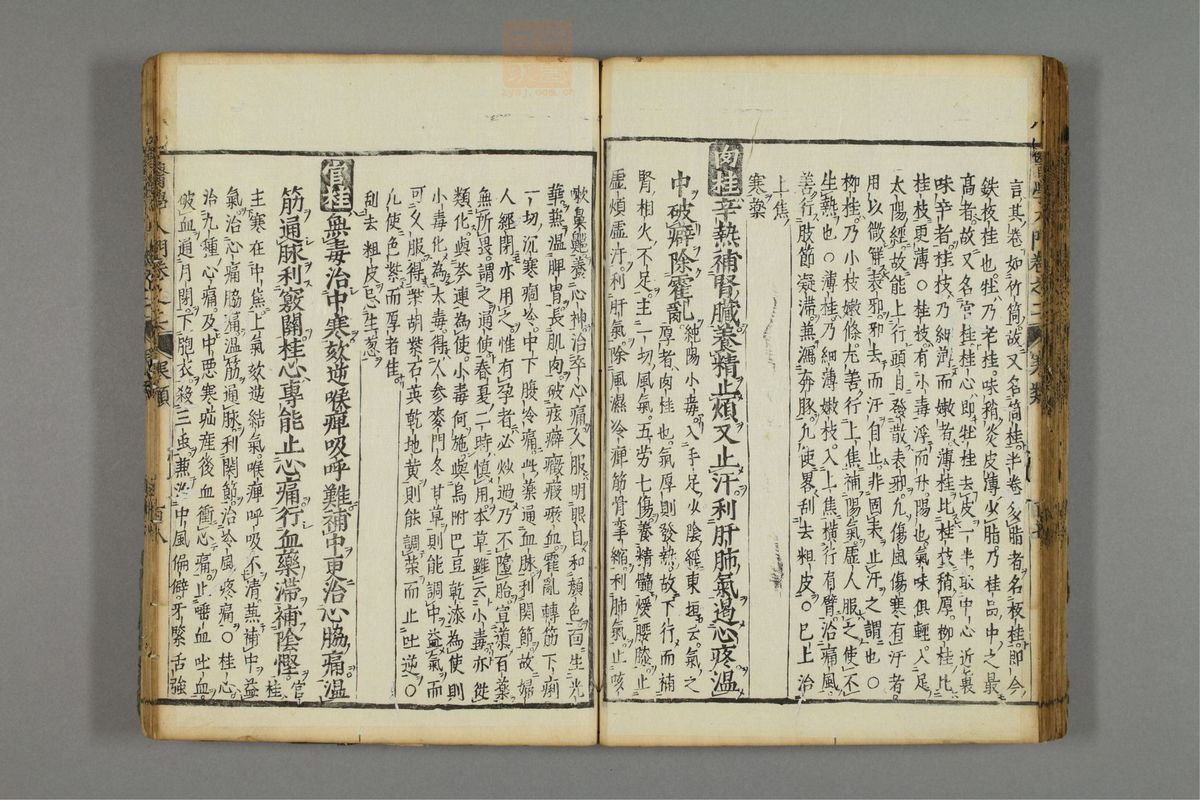 言其卷如竹筒故又名筒桂半卷多脂者名板桂即今
鉄板桂也牡乃老桂味稍淡皮薄少脂乃桂品中之最
高者故又名官桂桂心即牡桂去皮一半取中心近裏
味辛者桂枝乃細嫩者薄桂比桂枝稍厚柳桂比
桂枝更薄○桂枝有小毒浮而升陽也氣味俱輕入足
太陽經故能上行頭目發散表邪凡傷風傷寒有汗者
用以微觧表邪邪去而汗自止非固表止汗之謂也○
柳桂乃小枝嫩條尤善行上焦補陽氣虛人服之使不
生熱也○薄桂乃細薄嫩枝入上焦橫行有臂治痛風
善行肢節凝滯兼瀉奔豚凡使畧刮去粗皮○巳上治
上焦
寒藥
肉桂辛熱補腎臟養精止煩又止汗利肝肺氣過心疼温
中破癖除霍亂
純陽小毒入手足少陰經東垣云氣之
厚者肉桂也氣厚則發熱故下行而補
腎相火不足主一切風氣五劳七傷養精髓煖腰膝止
虛煩虛汗利肝氣除風濕冷痺筋骨攣縮利肺氣止咳
嗽鼻齆養心神治卒心痛久服明眼目和顏色面生光
華兼温脾胃長肌肉破痃癖癥瘕瘀血霍亂轉筋下痢
一切沉寒痼冷中下腹冷痛此藥通血脉利関節故婦
人經閉亦用之惟有孕者必炒過乃不墮胎宣導百藥
無所畏謂之通使春夏二時慎用本草雖云小毒亦從
類化與芩連為使小毒何施與烏附巴豆乾漆為使則
小毒化為大毒得人參麥門冬甘草則能調中益氣而
可久服得柴胡紫石英乾地黄則能調荣而止吐逆○
凡使色紫而厚者佳
刮去粗皮忌生葱
官桂無毒治中寒欬逆喉痺吸呼難補中更治心脇痛温
筋通脉利竅關桂心專能止心痛行血藥滯補陰慳
官
桂
主寒在中焦上氣欬逆結氣喉痺呼吸不清兼補中益
氣治心痛脇痛温筋通脉利関節治冷風疼痛○桂心
治九種心痛及中悪寒疝産後血衝心痛止唾血吐血
破血通月閉下胞衣殺三虫兼治中風偏僻牙緊舌強